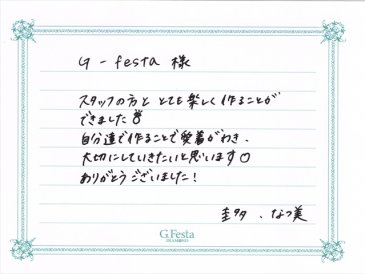 G-festa 様
スタッフの方と とても楽しく作ることが
できました
自分達で作ることで愛着がわき、
大切にしていきたいと思います♡
ありがとうございました!
圭多、なつ美
G.Festa